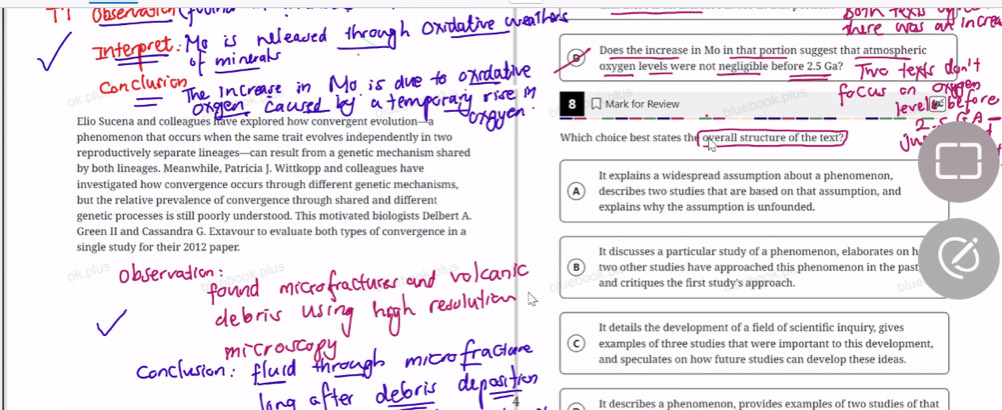 Observation
Interpret: Mo is released through oxidative weathers
of minerals
Conclusion
The increase in Mo is due to oxidative
oxygen caused by a temporary rise in
oxygen.
Elio Sucena and colleagues have explored how convergent evolution—a
phenomenon that occurs when the same trait evolves independently in two
reproductively separate lineages—can result from a genetic mechanism shared
by both lineages. Meanwhile, Patricia J. Wittkopp and colleagues have
investigated how convergence occurs through different genetic mechanisms,
but the relative prevalence of convergence through shared and different
genetic processes is still poorly understood. This motivated biologists Delbert A.
Green II and Cassandra G. Extavour to evaluate both types of convergence in a
single study for their 2012 paper.
observation:
found microfractures and volcanic
debris using high resolution
microscopy
Conclusion: fluid through microfracture
long after debris deposition
4
Both texts
there was an increa
D
Does the increase in Mo in that portion suggest that atmospheric
oxygen levels were not negligible before 2.5 Ga?
Two texts don't
focus on oxygen
level before
2.5 GA
8
Mark for Review
Which choice best states the overall structure of the text?
A
It explains a widespread assumption about a phenomenon,
describes two studies that are based on that assumption, and
explains why the assumption is unfounded.
B
It discusses a particular study of a phenomenon, elaborates on h
two other studies have approached this phenomenon in the past
and critiques the first study's approach.
C
It details the development of a field of scientific inquiry, gives
examples of three studies that were important to this development,
and speculates on how future studies can develop these ideas.
It describes a phenomenon, provides examples of two studies of that
ok.plus
bluebook.plus